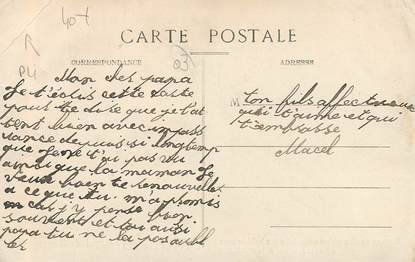 407
CARTE POSTALE
CORRESPONDANCE
03
ADRESSE
Mon cher papa
Je t'écris cette carte
pour te dire que je t'at
tent bien avec impass
iance depuis si longtemp
que je ne t'ai pas vu
ainsi que la maman Je
veux bien te renouveller
a ce que tu m'a promis
car j'y pense bien
souvent et toi aussi
papa tu ne la pas oubl
ier
M
ton fils affectueux
qui t'aime et qui
t'embrasse
Macel